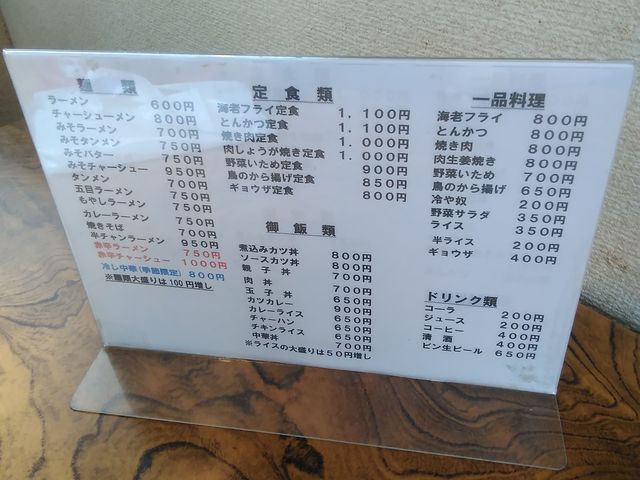 麺　類
ラーメン 600円
チャーシューメン 800円
みそラーメン 700円
みそタンメン 750円
みそバター 750円
みそチャーシュー 950円
タンメン 700円
五目ラーメン 750円
もやしラーメン 750円
カレーラーメン 750円
焼きそば 700円
半チャンラーメン 950円
赤辛ラーメン 750円
赤辛チャーシュー 1000円
冷し中華(季節限定) 800円
※麺類大盛りは100円増し
定 食 類
海老フライ定食 1．100円
とんかつ定食 1．100円
焼き肉定食 1．000円
肉しょうが焼き定食 1．000円
野菜いため定食 900円
鳥のから揚げ定食 850円
ギョウザ定食 800円
御 飯 類
煮込みカツ丼 800円
ソースカツ丼 800円
親 子 丼 700円
肉 丼 700円
玉 子 丼 650円
カツカレー 900円
カレーライス 650円
チャーハン 650円
チキンライス 650円
中華丼 700円
※ライスの大盛りは50円増し
一品料理
海老フライ 800円
とんかつ 800円
焼き肉 800円
肉生姜焼き 800円
野菜いため 700円
鳥のから揚げ 650円
冷や奴 200円
野菜サラダ 350円
ライス 350円
半ライス 200円
ギョウザ 400円
ドリンク類
コーラ 200円
ジュース 200円
コーヒー 400円
清 酒 400円
ビン生ビール 650円